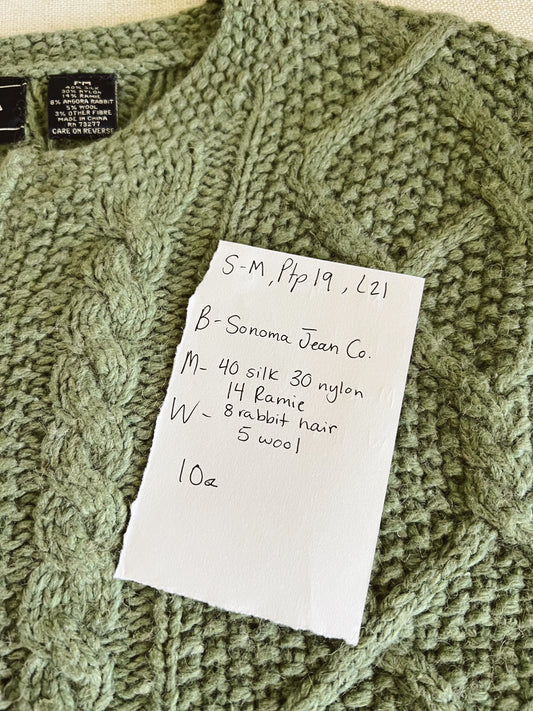 PM
40% SILK
30% NYLON
14% RAMIE
8% ANGORA RABBIT
5% WOOL
3% OTHER FIBRE
MADE IN CHINA
RN 73277
CARE ON REVERSE
S-M, Ptp 19, L21
B- Sonoma Jean Co.
M- 40 silk 30 nylon
14 Ramie
W- 8 rabbit hair
5 wool
10oz